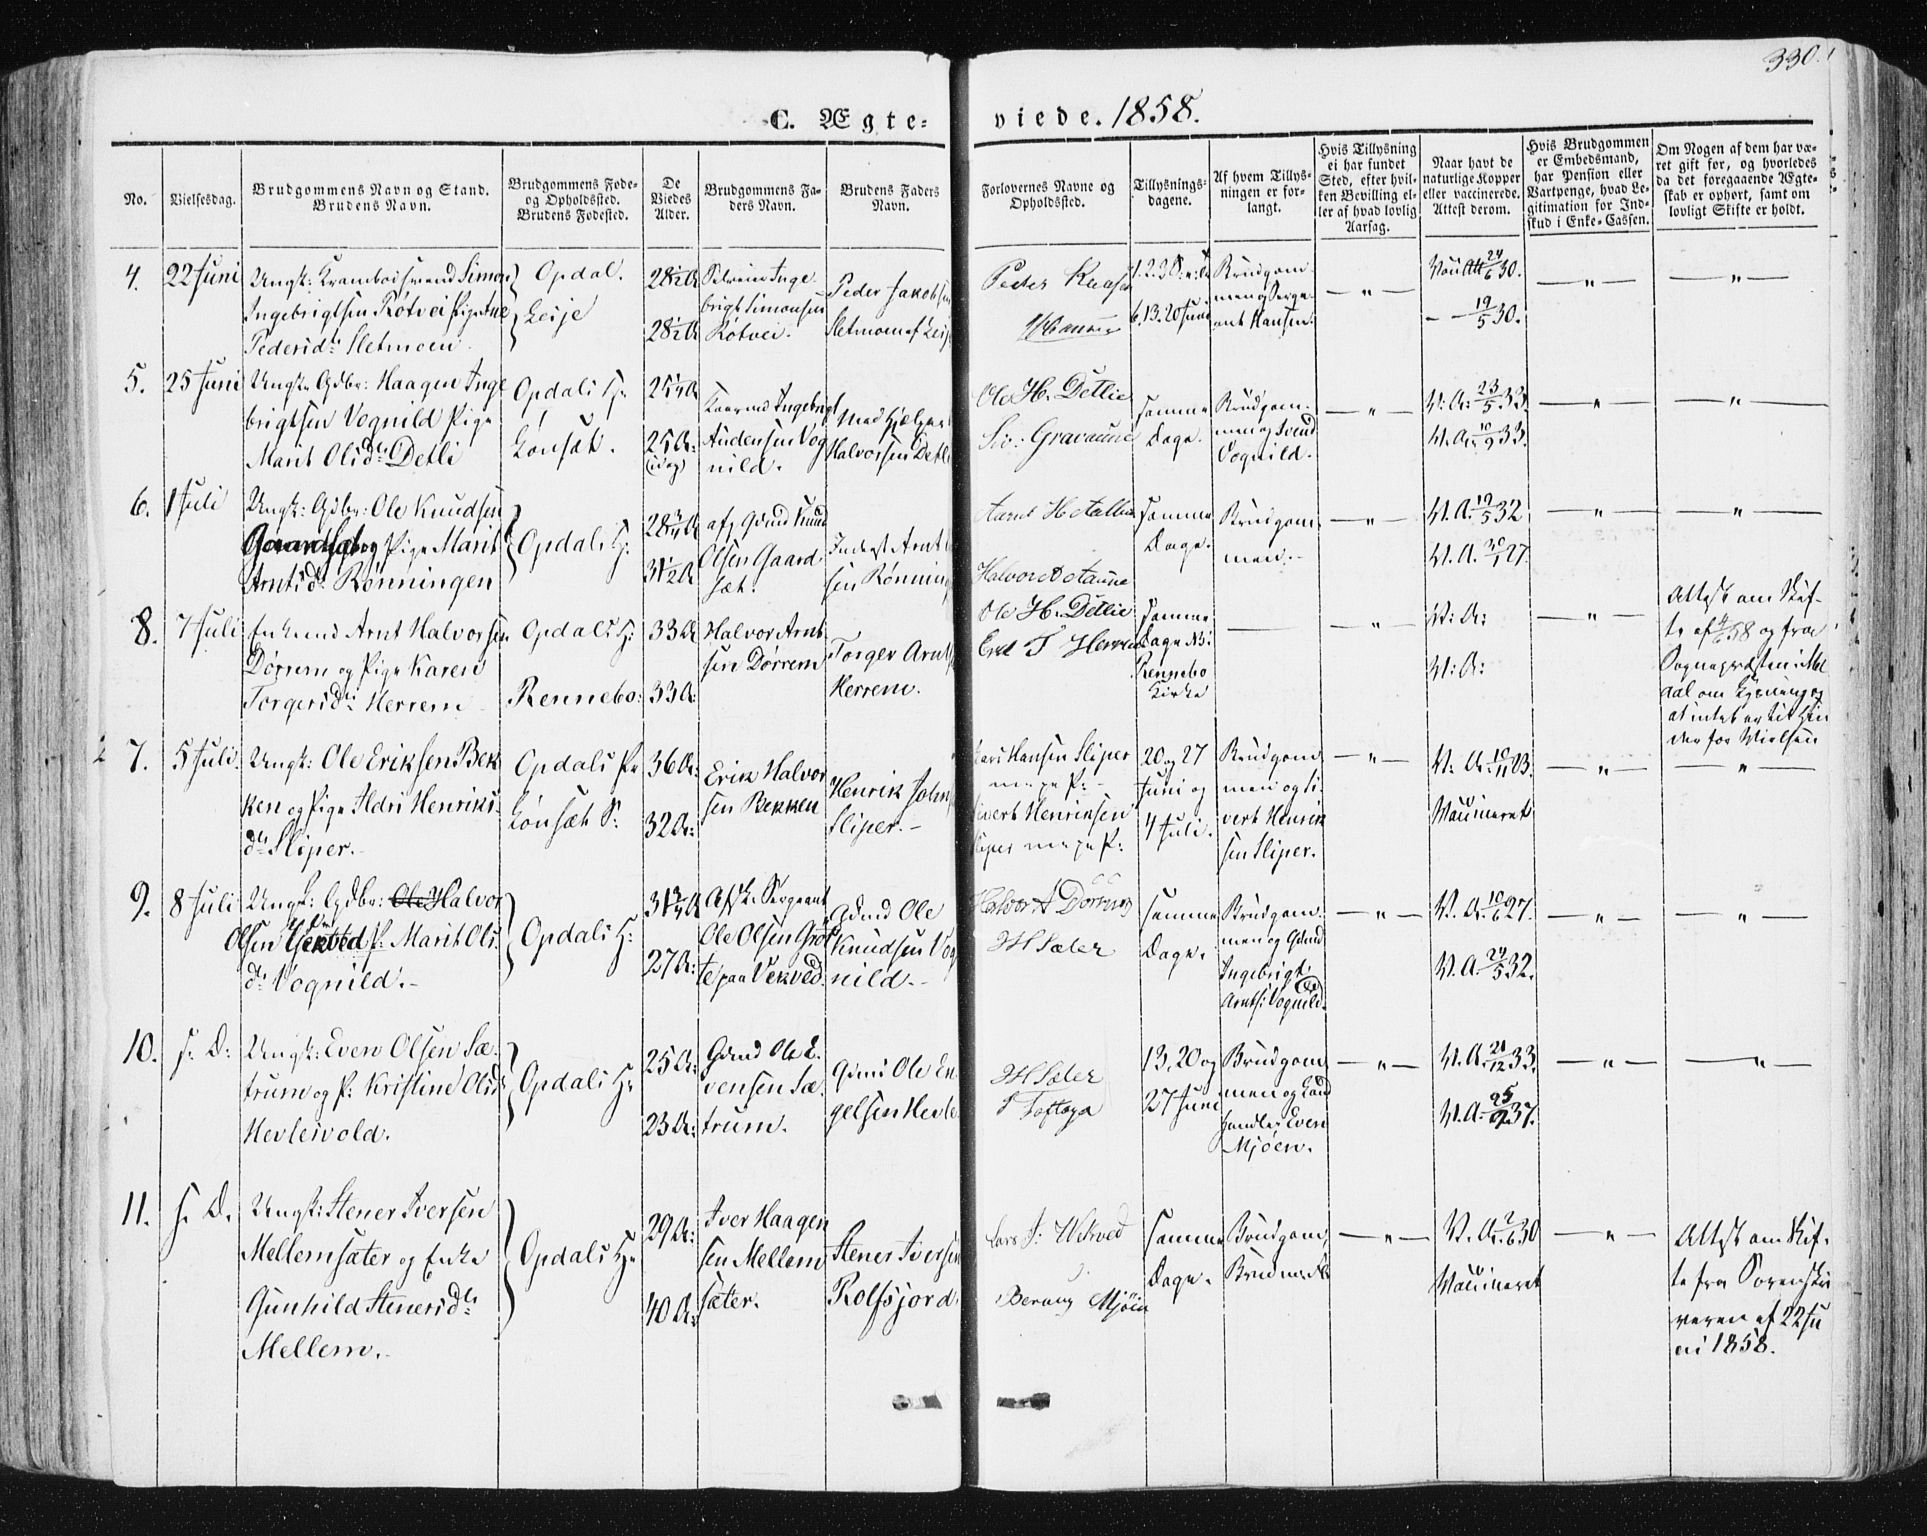 330.
C. Ægte- viede. 1858.
No.
Vielsesdag.
Brudgommens Navn og Stand.
Brudens Navn.
Brudgommens Føde-
og Opholdssted.
Brudens Fødested.
De
Viedes
Alder.
Brudgommens Fa-
ders Navn.
Brudens Faders
Navn.
Forlovernes Navne og
Opholdssted.
Tillysnings-
dagene.
Af hvem Tillys-
ningen er for-
langt.
Hvis Tillysning
ei har fundet
Sted, efter hvil-
ken Bevilling el-
ler af hvad lovlig
Aarsag.
Naar havt de
naturlige Kopper
eller vaccinerede.
Attest derom.
Hvis Brudgommen
er Embedsmand,
har Pension eller
Vartpenge, hvad Le-
gitimation for Ind-
skud i Enke-Cassen.
Om Nogen af dem har væ-
ret gift før, og hvorledes
da det foregaaende Ægte-
skab er ophørt, samt om
lovligt Skifte er holdt.
4.
22 Juni
Ungk: Krambodsvend Simon
Ingebrigtsen Røtvei Pige Ane
Pedersdt. Sletmoen
Opdal.
Leije
28½ A
28½ A
Inge-
brigt Simonsen
Røtvei.
Peder Jakobsen
Sletmoen af Leij
Peder
6. 13. 20 Juni
Brudgom
men og Serge-
ant Hansen.
24/6 30.
19/5 30.
5.
25 Juni
Ungk. Gdbr: Haagen Inge
brigtsen Vognild Pige
Marit Olsdt. Detli
Opdals H:
Lønsæt.
25¼ A
25 A:
Ingebrigt
Audensen Vog
nild.
Halvorsen Detli
Ole H. Detlie
Siv: Gravaune
samme
Dage.
Brudgom-
men og Svend
Vognild.
V: A: 23/5 33.
V. A. 10/9 33.
6.
1 Juli
Ungk: Gdbr: Ole Knudsen
og Pige Marit
Arntsdt. Rønningen
Opdals H:
28¾ A
31½ A
afg Gdmd Knud
Olsen Gaard
sæt.
Inderst Arnt
sen Rønning
Halvor A Aune
samme
Dage.
Brudgom-
men.
V. A. 19/5 32
V. A. 30/1 27.
8.
7 Juli
Enkemd Arnt Halvorsen
Dørrem og Pige Karen
Torgersdt: Herrem
Opdals H:
Rennebo:
33 A
33 A:
Halvor Arnt-
sen Dørrem
Torger Arnts
Herrem.
Ole H. Detlie
T Herrem
samme
Dage Nb:
Rennebo
Kirke
V: A:
V: A:
Attest om Skif-
te af 58 og fra
Sognepræsten i Mel
dal om Lysning og
at intet er til Hin
der for Vielsen
7.
5 Juli.
Ungk: Ole Eriksen Bek
ken og Pige Ildri Henriks-
dt. Sliper.
Opdals Pr
Lønsæt S:
36 A:
32 A:
Erik Halvor
sen Bekken
Henrik John
Sliper.
Lars Hansen Sliper
m. p. P:
Sivert Henriksen
Sliper m. p. P:
20 og 27
Juni og
4 Juli.
Brudgom
men og Si-
vert Henrik
sen Sliper.
V: A. 10/11 23.
Vaccineret
9.
8 Juli
Ungk: Gdbr: Ole Halvor
Olsen Vekved P. Marit Ols
dt. Vognild.
Opdals H:
31¾ A
27 A:
Afsk. Sergeant
Ole Olsen Grøt
te paa Vekved.
Gdmd Ole
Knudsen Vog
nild.
Halvor A Dørrem
H Sæter
samme
Dage.
Brudgom-
men og Gdmd
Ingebrigt
Arnts: Vognild.
V. A. 10/6 27.
V. A. 24/5 32.
10.
s. D:
Ungk: Even Olsen Sæ-
trum og P: Kristine Olsdt
Hevleivold.
Opdals H:
25 A:
23 A:
Gdmd Ole E.
vensen Sæ-
trum.
Gdmd Ole En-
gelsen Hevle
H Sæter
13, 20 og
27 Juni
Brudgom
men og Land
handler Even
Mjøen.
V. A. 21/12 33.
V. A. 37.
11.
s. D.
Ungk: Stener Iversen
Mellemsæter og Enke
Gunhild Stenersdt.
Mellem.
Opdals H:
29 A:
40 A:
Iver Haagen
sen Mellem
sæter.
Stener Iversen
Rolfsjord.
Lars J: Vekved
Mjöen
samme
Dage.
Brudgom
V. A. 2/6 30
Vaccineret
Attest om Skif-
te fra Sorenskri
veren af 22 Ju
ni 1858.